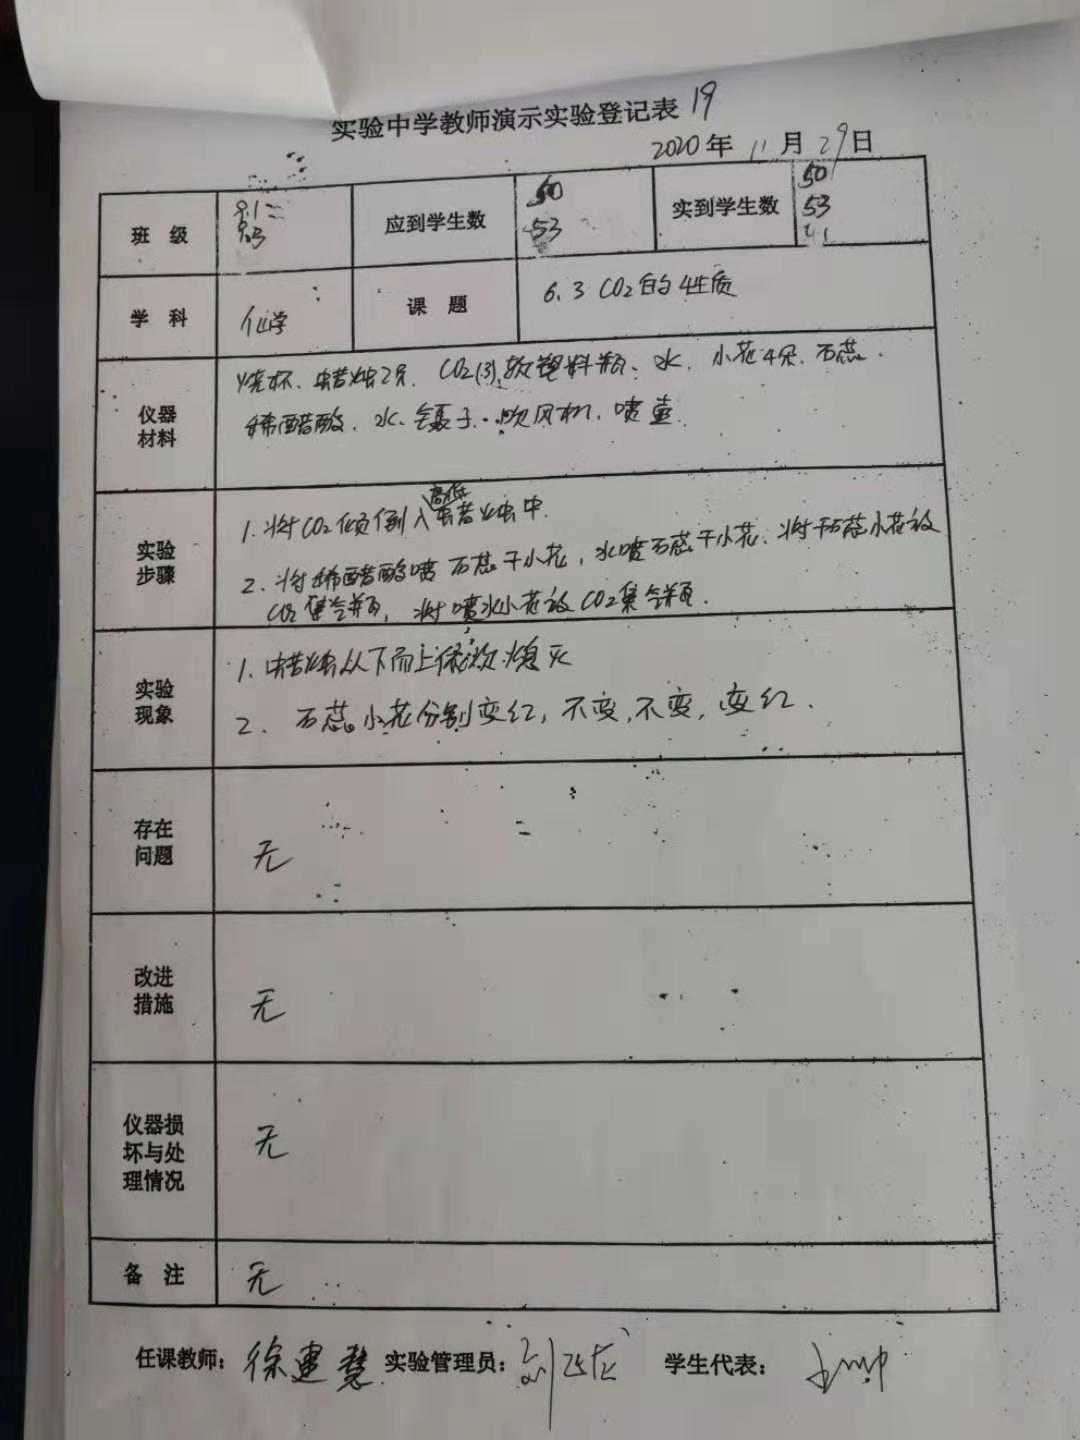 实验中学教师演示实验登记表 19
2020年 11月 29日
班 级
应到学生数 50
53
实到学生数 50
53
学 科 化学
课 题 6.3 CO2的性质
仪器
材料
烧杯、蜡烛2只、CO2(3)、软塑料瓶、水、小花4朵、石蕊.
稀醋酸、水、镊子、吹风机、喷壶.
实验
步骤
1. 将CO2倾倒入高低蜡烛中.
2. 将稀醋酸喷石蕊干小花,水喷石蕊干小花.将干石蕊小花放
CO2集气瓶,将喷水小花放CO2集气瓶.
实验
现象
1. 蜡烛从下而上依次熄灭
2. 石蕊小花分别变红,不变,不变,变红.
存在
问题
无
改进
措施
无
仪器损
坏与处
理情况
无
备 注 无
任课教师: 徐建慧 实验管理员: 学生代表: